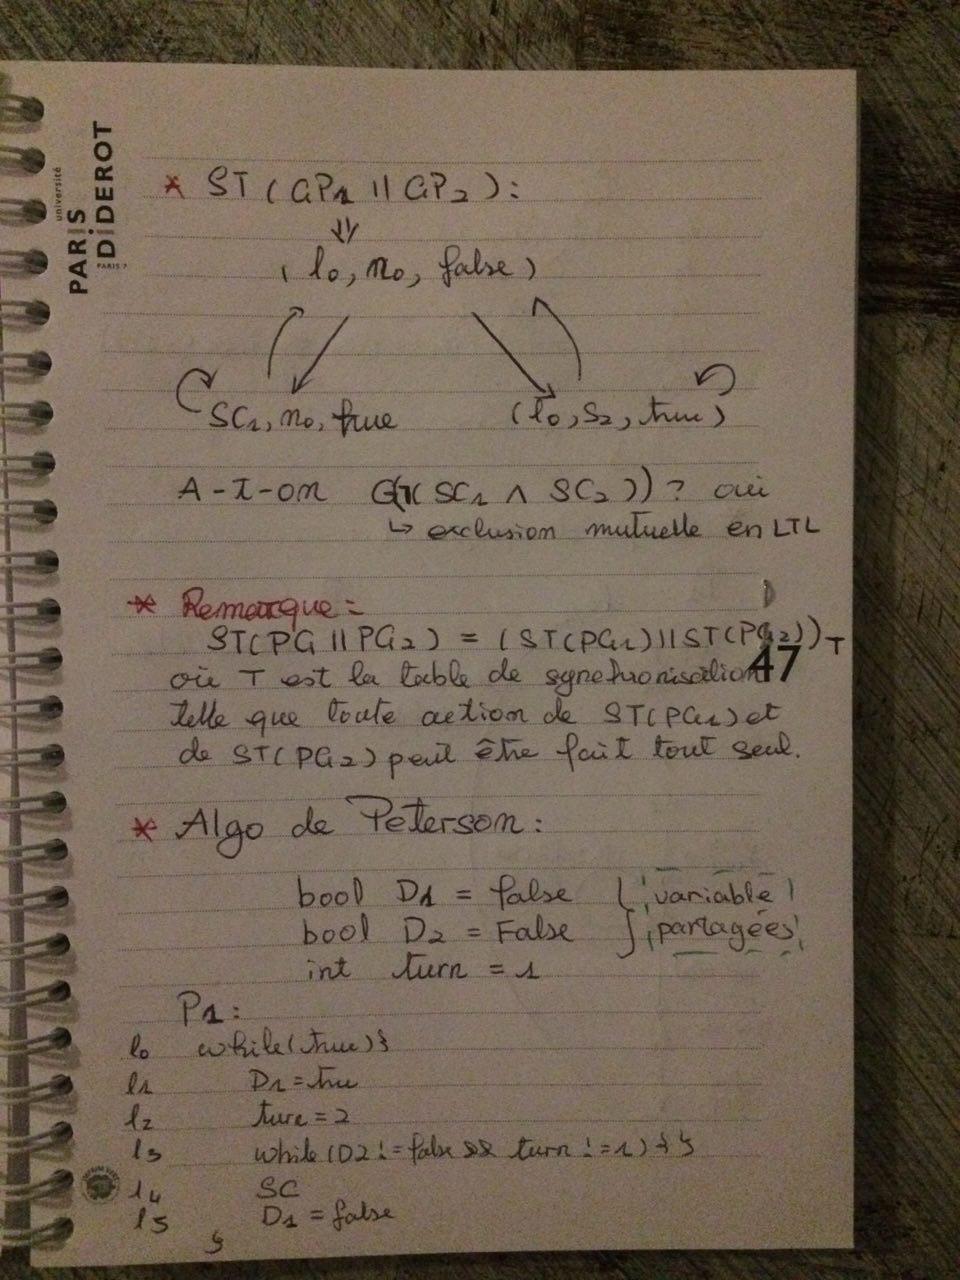 université
PARIS
DiDEROT
PARIS 7
* ST ( GP1 || GP2 ) :
( l0, n0, false )
SC1, n0, true (l0, S2, true)
A-t-on G(¬( SC1 ∧ SC2 )) ? oui
↳ exclusion mutuelle en LTL
* Remarque :
ST(PG || PG2) = (ST(PG1) || ST(PG2))T
47
où T est la table de synchronisation
telle que toute action de ST(PG1) et
de ST(PG2) peut être fait tout seul.
* Algo de Peterson :
bool D1 = false } variable
bool D2 = False } partagées
int turn = 1
P1 :
l0 while(true){
l1 D1 = tru
l2 ture = 2
l3 while (D2 != false && turn != 1) { }
l4 SC
l5 D1 = false
}